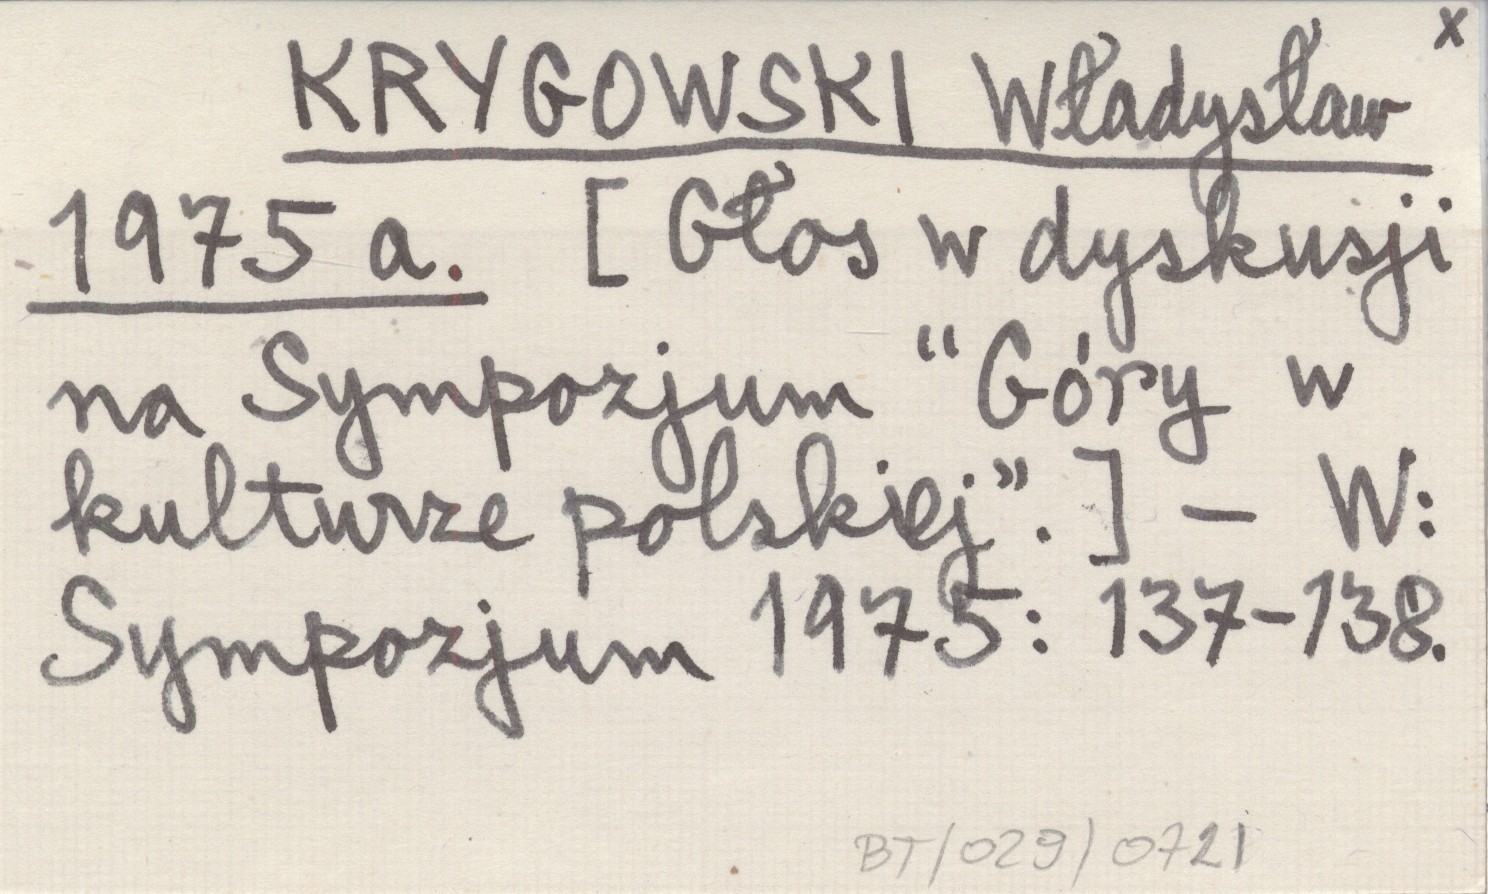 x
KRYGOWSKI Władysław
1975 a. [Głos w dyskusji
na Sympozjum “Góry w
kulturze polskiej”.] – W:
Sympozjum 1975: 137-138.
BT/029/0721